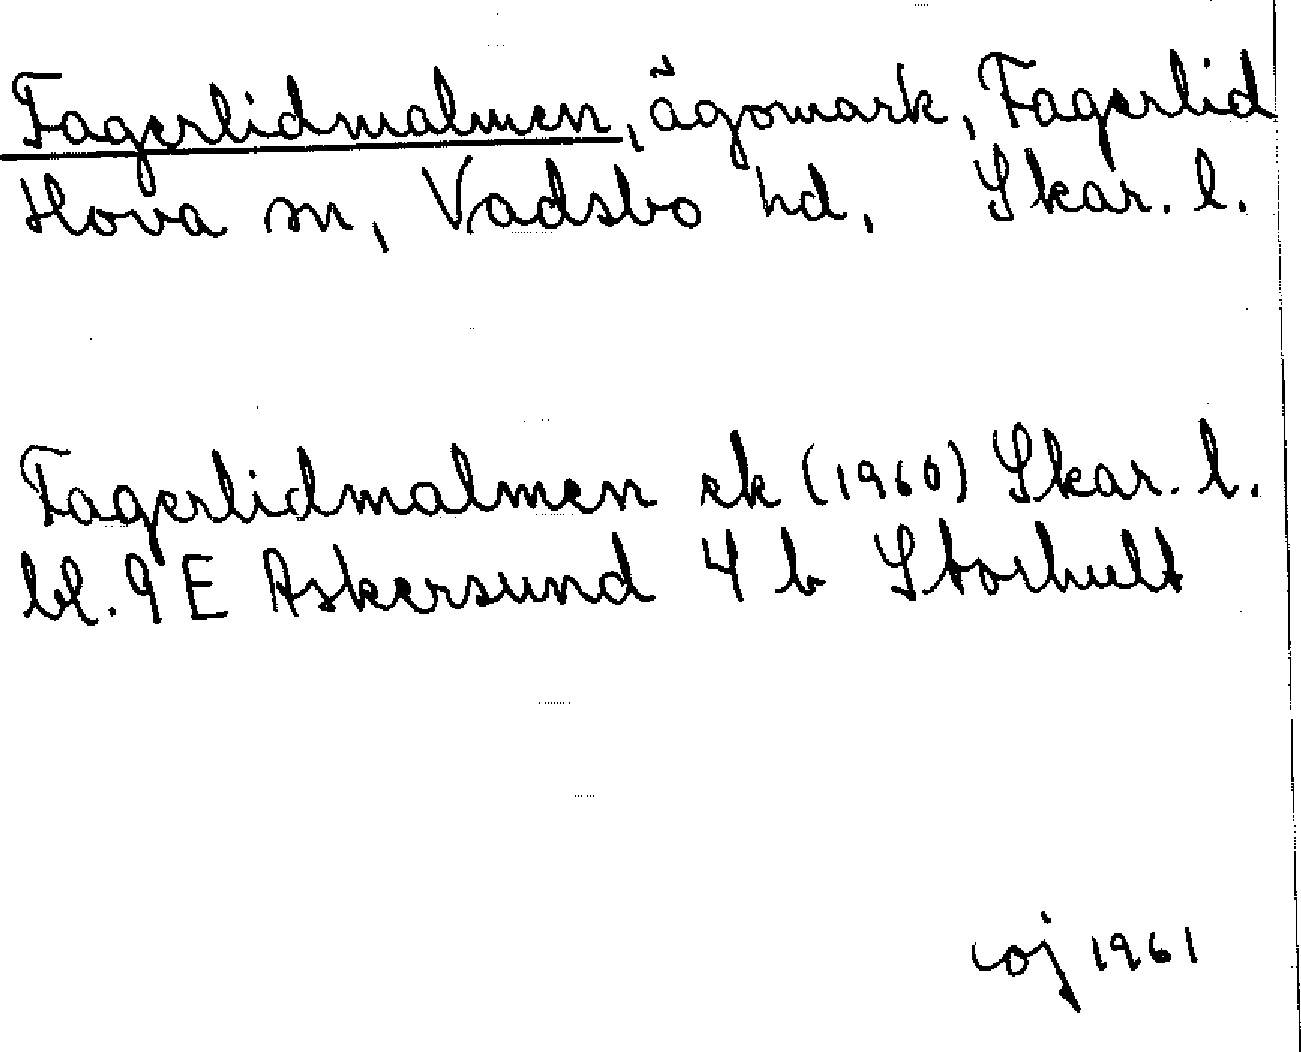 Fagerlidmalmen, ägomark, Fagerlid
Hova sn, Vadsbo hd, Skar. l.
Fagerlidmalmen ek (1960) Skar. l.
bl. 9 E Askersund 4 b Storhult
coj 1961